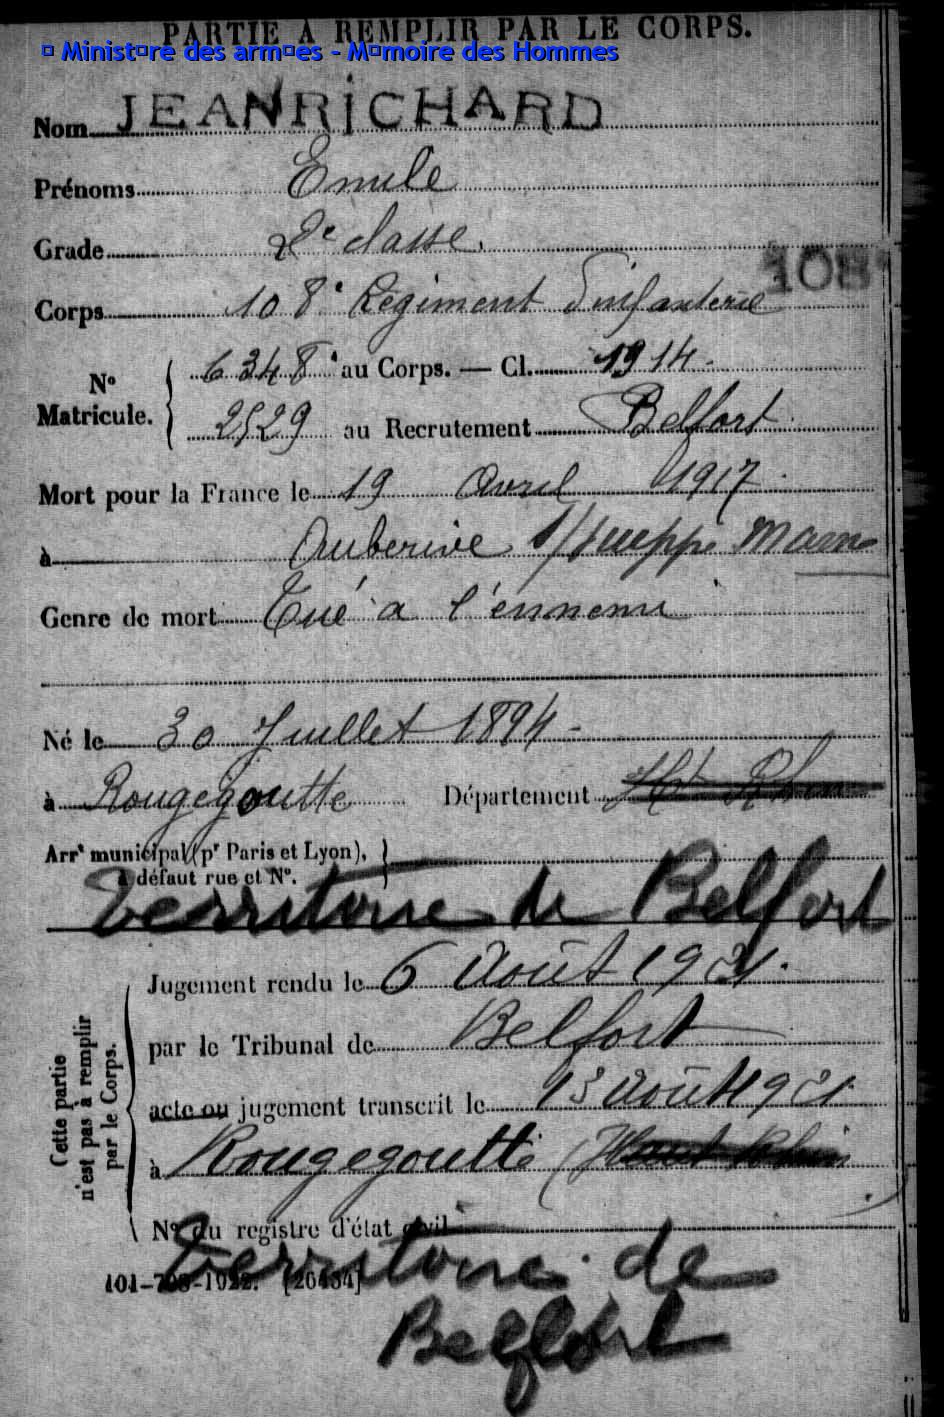 PARTIE A REMPLIR PAR LE CORPS.
Ministère des armées - Mémoire des Hommes
Nom JEANRICHARD
Prénoms Emile
Grade 2e classe.
108
Corps 108e Régiment d'infanterie
N° Matricule. 6348 au Corps. — Cl. 1914.
2529 au Recrutement Belfort
Mort pour la France le 19 Avril 1917
à Auberive s/ Suippe Marne
Genre de mort Tué à l'ennemi
Né le 30 Juillet 1894
à Rougegoutte Département Ht Rhin
Arrt municipal (pr Paris et Lyon),
à défaut rue et N°.
Territoire de Belfort
Cette partie n'est pas à remplir par le Corps.
Jugement rendu le 6 Août 1921.
par le Tribunal de Belfort
acte ou jugement transcrit le 13 Août 1921
à Rougegoutte (Haut Rhin)
N° du registre d'état civil
Territoire de
101-708-1922. [26434]
Belfort